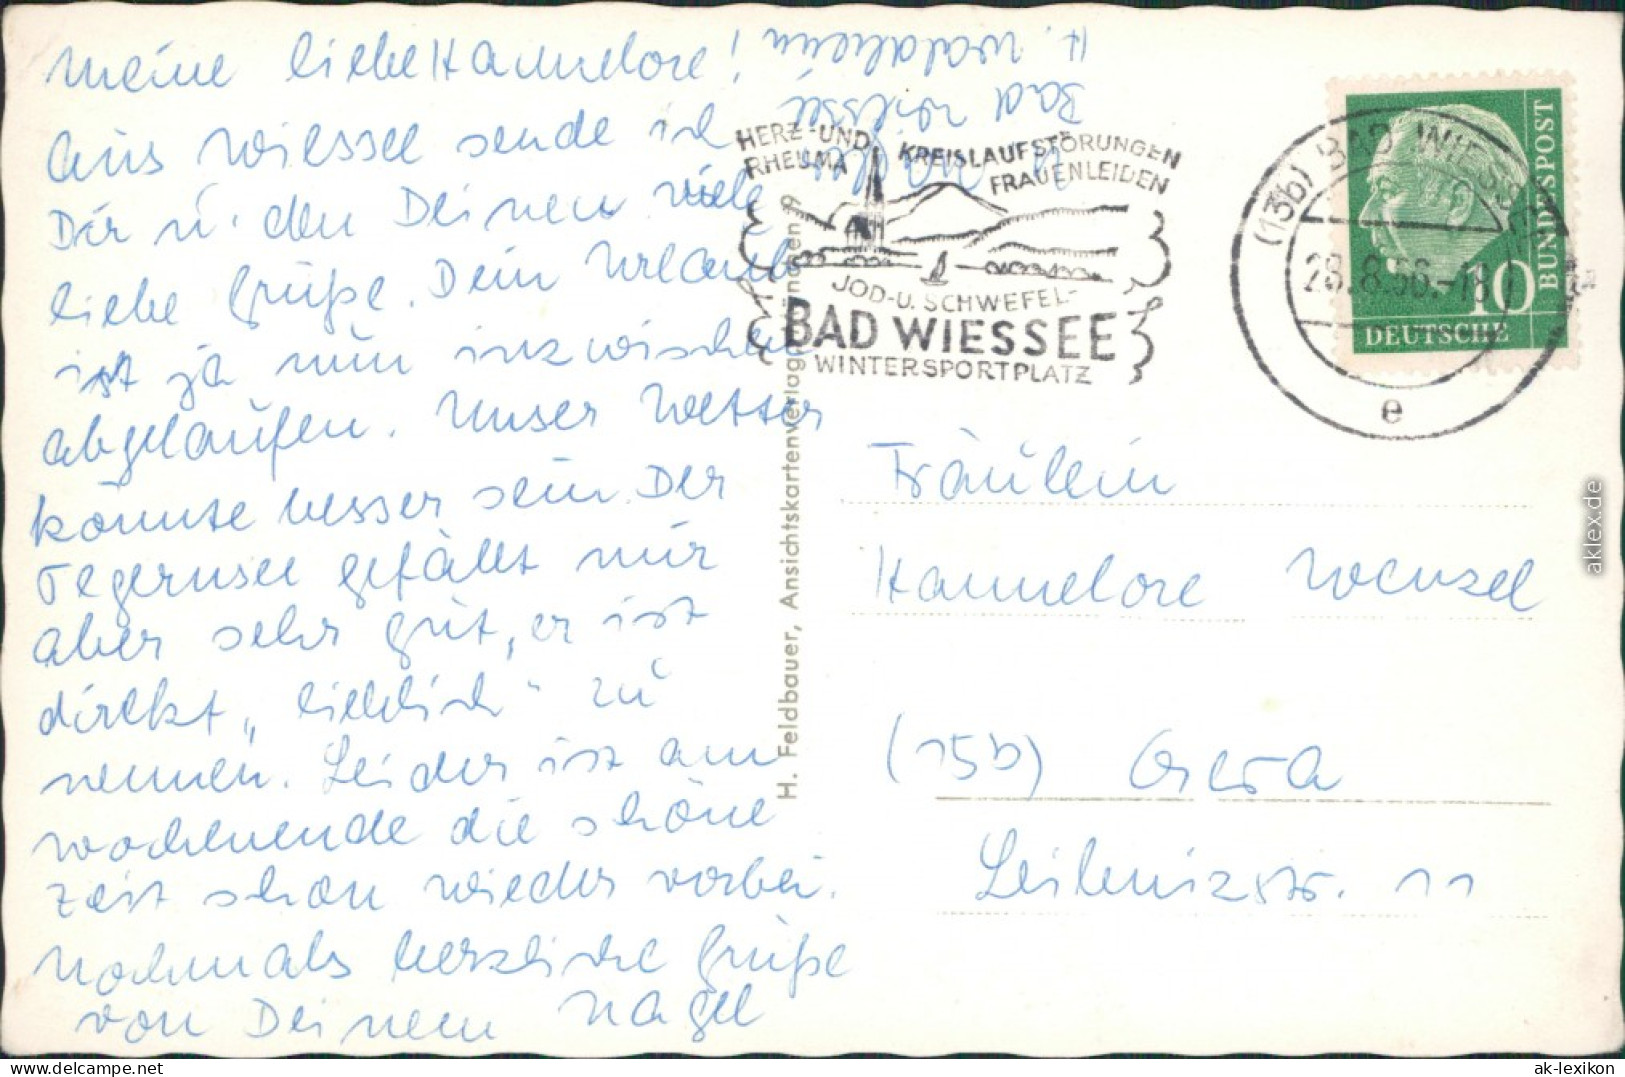 Meine liebe Hannelore!
Aus Wiessee sende ich
Dir u. den Deinen viele
liebe Grüße. Dein Urlaub
ist ja nun inzwischen
abgelaufen. Unser Wetter
könnte besser sein. Der
Tegernsee gefällt mir
aber sehr gut, er ist
direkt „lieblich“ zu
nennen. Leider ist am
Wochenende die schöne
Zeit schon wieder vorbei.
Nochmals herzliche Grüße
von Deinem Nagel
Bad Wiessee
H.
HERZ- UND KREISLAUFSTÖRUNGEN
RHEUMA FRAUENLEIDEN
JOD- U. SCHWEFEL-
BAD WIESSEE
WINTERSPORTPLATZ
(13b) BAD WIESSEE
28.8.56.-18
e
10
DEUTSCHE
BUNDESPOST
H. Feldbauer, Ansichtskartenverlag
Fräulein
Hannelore Wenzel
(15b) Gera
Leibnizstr. 11
aklex.de
www.delcampe.net
ak-lexikon